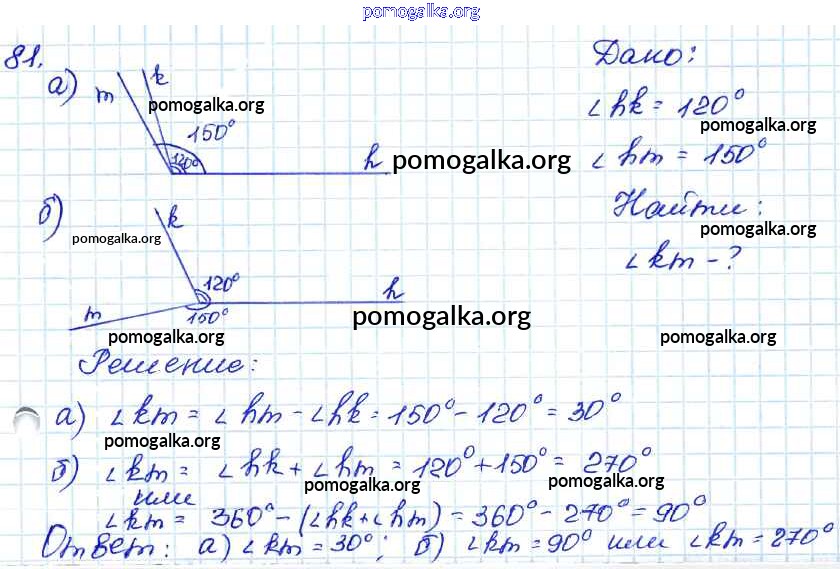 pomogalka.org
81.
Дано:
а) m k
pomogalka.org
∠hk = 120°
150°
pomogalka.org
120° h pomogalka.org
∠hm = 150°
б) k
Найти:
pomogalka.org pomogalka.org
∠km - ?
120° h
m 150° pomogalka.org
pomogalka.org pomogalka.org
Решение:
а) ∠km = ∠hm - ∠hk = 150° - 120° = 30°
pomogalka.org
б) ∠km = ∠hk + ∠hm = 120° + 150° = 270°
или pomogalka.org pomogalka.org
∠km = 360° - (∠hk + ∠hm) = 360° - 270° = 90°
Ответ: а) ∠km = 30°; б) ∠km = 90° или ∠km = 270°